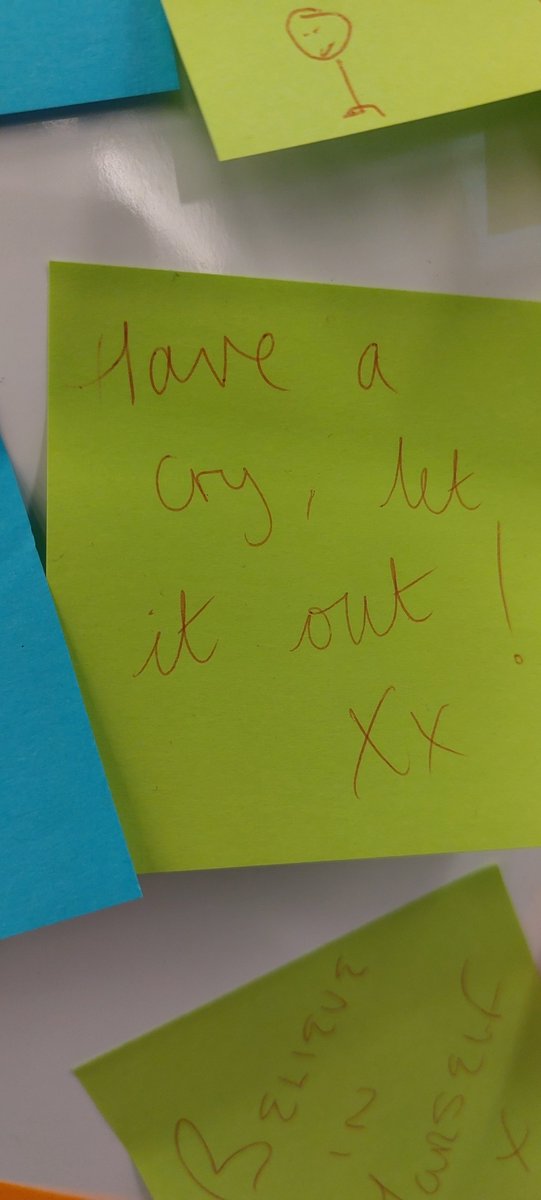 Have a
cry, let
it out!
Xx
BELIEVE
IN
YOURSELF
X